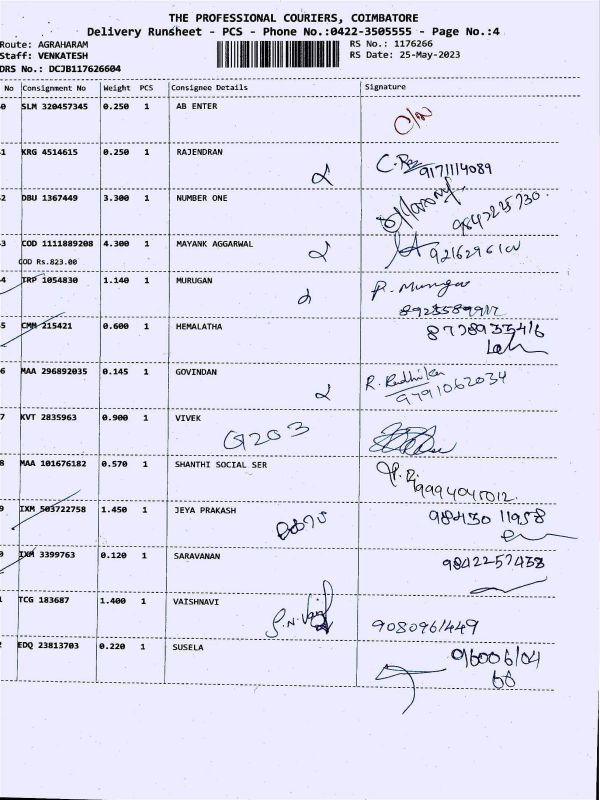 THE PROFESSIONAL COURIERS, COIMBATORE
Delivery Runsheet - PCS - Phone No.:0422-3505555 - Page No.:4
Route: AGRAHARAM
RS No.: 1176266
Staff: VENKATESH
RS Date: 25-May-2023
DRS No.: DCJB117626604
No Consignment No Weight PCS Consignee Details Signature
0 SLM 320457345 0.250 1 AB ENTER
1 KRG 4514615 0.250 1 RAJENDRAN
9171114089
2 DBU 1367449 3.300 1 NUMBER ONE
3 COD 1111889208 4.300 1 MAYANK AGGARWAL
COD Rs.823.00
4 TRP 1054830 1.140 1 MURUGAN
5 CMM 215421 0.600 1 HEMALATHA
6 MAA 296892035 0.145 1 GOVINDAN
R. Radhika
9791062034
7 KVT 2835963 0.900 1 VIVEK
G203
8 MAA 101676182 0.570 1 SHANTHI SOCIAL SER
9 IXM 503722758 1.450 1 JEYA PRAKASH
98430 11958
0 IXM 3399763 0.120 1 SARAVANAN
9842257438
1 TCG 183687 1.400 1 VAISHNAVI
9080961449
2 EDQ 23813703 0.220 1 SUSELA
96006104
66